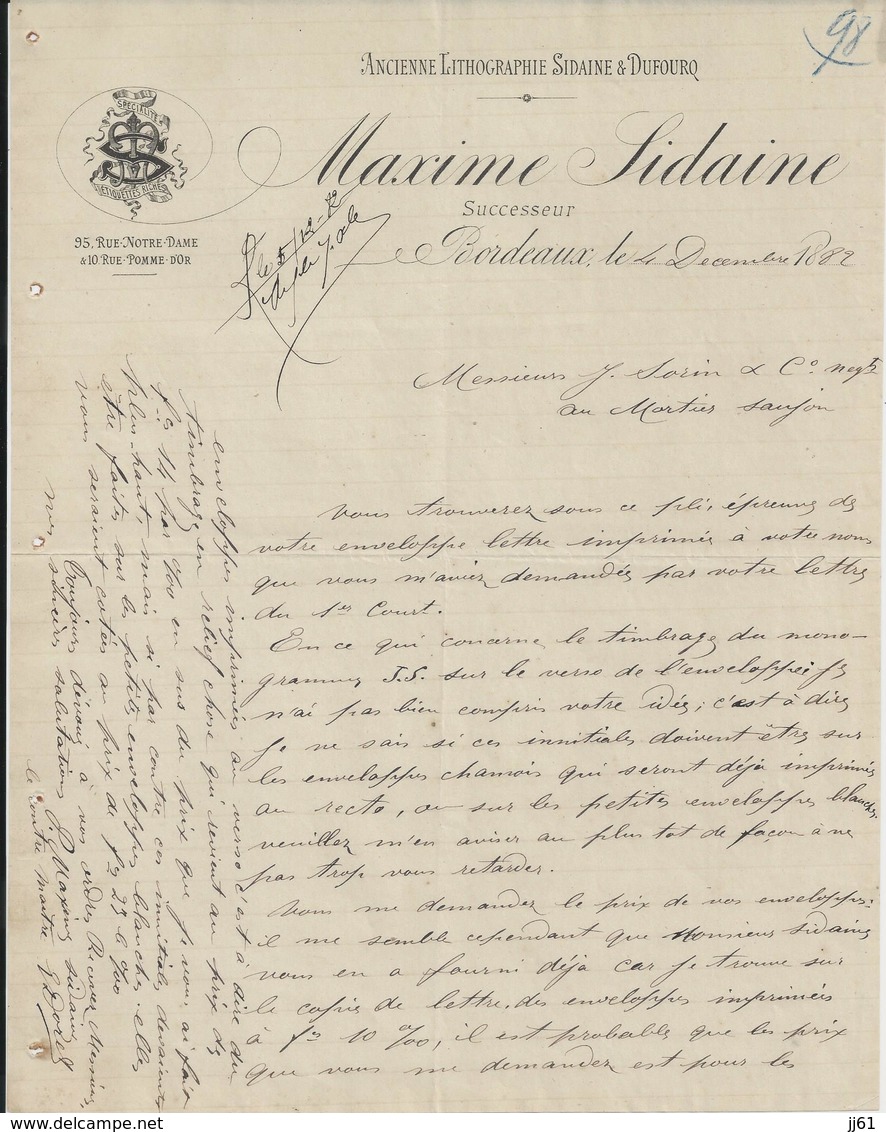 98
ANCIENNE LITHOGRAPHIE SIDAINE & DUFOURQ
SPÉCIALITÉ
ÉTIQUETTES RICHES
Maxime Sidaine
Successeur
95, RUE-NOTRE-DAME
& 10, RUE-POMME-D'OR
Bordeaux, le 4 Decembre 1882
le 5/12-82
Messieurs J. Sorin & Co negts
au Mortier Saujon
Vous trouverez sous ce pli, épreuve de
votre enveloppe lettre imprimée à votre nom
que vous m'aviez demandée par votre lettre
du 1er Court.
En ce qui concerne le timbrage du mono-
gramme J.S. sur le verso de l'enveloppe je
n'ai pas bien compris votre idée; c'est à dire
je ne sais si ces innitiales doivent être sur
les enveloppes chamois qui seront déjà imprimées
au recto, ou sur les petites enveloppes blanches.
veuillez m'en aviser au plus tot de façon à ne
pas trop vous retarder.
Vous me demandez le prix de vos enveloppes.
il me semble cependant que Monsieur Sidaine
vous en a fourni déjà car je trouve sur
le copie de lettre, des enveloppes imprimées
à fs 10 %00, il est probable que le prix
que vous me demandez est pour les
enveloppes imprimées au verso c'est à dire du
timbrage en relief chose qui revient au prix de
fs 14 par %00 en sus du prix que je vous ai fait
plus haut, mais si par contre ces innitiales devaient
être faites sur les petites enveloppes blanches elles
vous seraient cotées au prix de fs 25 le %00
Toujours dévoué à vos ordres Recevez Messieurs,
mes sincères salutations P. Maxime Sidaine
le contre maitre